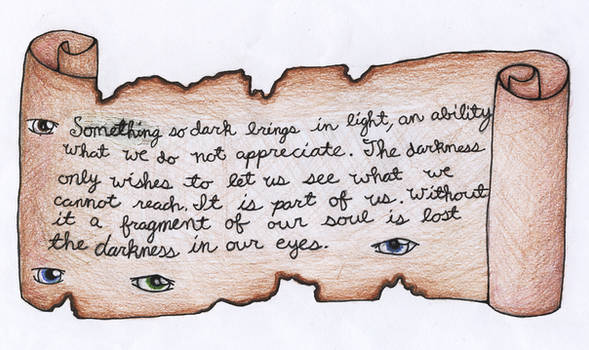 Something so dark brings in light, an ability
what we do not appreciate. The darkness
only wishes to let us see what we
cannot reach. It is part of us. Without
it a fragment of our soul is lost
the darkness in our eyes.